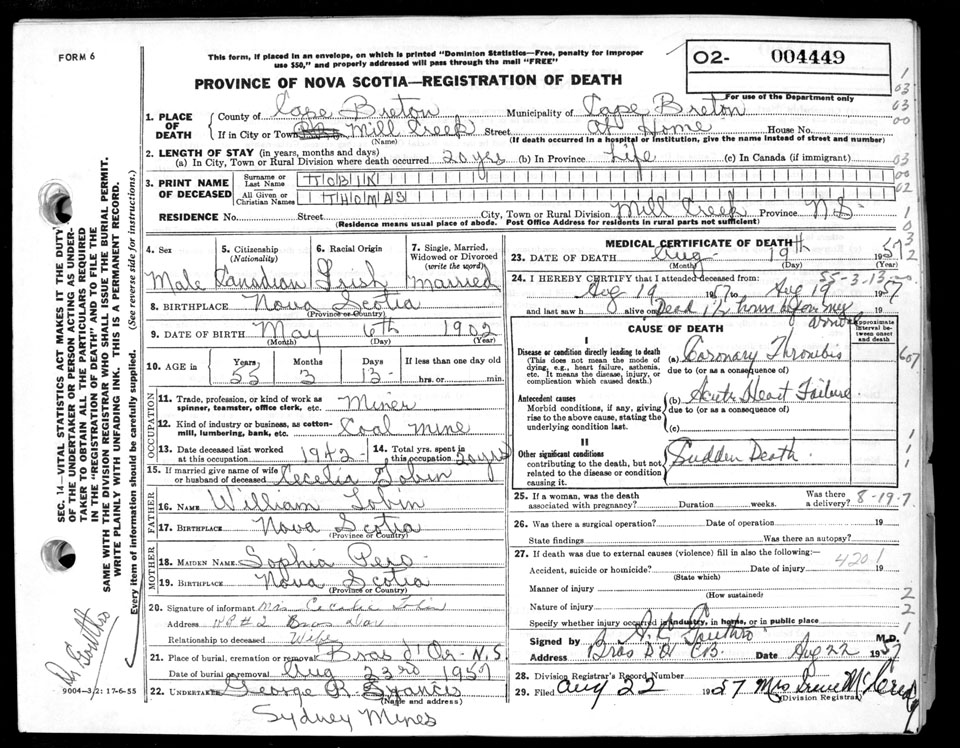 FORM 6
This form, if placed in an envelope, on which is printed "Dominion Statistics—Free, penalty for improper
use $50," and properly addressed will pass through the mail "FREE"
PROVINCE OF NOVA SCOTIA—REGISTRATION OF DEATH
02- 004449
For use of the Department only
1. PLACE OF DEATH
County of Cape Breton Municipality of Cape Breton
If in City or Town Mill Creek Street At Home House No.
(Name) (If death occurred in a hospital or institution, give the name instead of street and number)
2. LENGTH OF STAY (in years, months and days)
(a) In City, Town or Rural Division where death occurred 20 yrs (b) In Province Life (c) In Canada (if immigrant)
3. PRINT NAME OF DECEASED
Surname or Last Name TOBIN
All Given or Christian Names THOMAS
RESIDENCE No. Street City, Town or Rural Division Mill Creek Province N.S.
(Residence means usual place of abode. Post Office Address for residents in rural parts not sufficient)
4. Sex 5. Citizenship (Nationality) 6. Racial Origin 7. Single, Married, Widowed or Divorced (write the word)
Male Canadian Irish Married
8. BIRTHPLACE Nova Scotia
(Province or Country)
9. DATE OF BIRTH May 6th 1902
(Month) (Day) (Year)
10. AGE in Years Months Days If less than one day old
55 3 13 hrs. or min.
OCCUPATION
11. Trade, profession, or kind of work as spinner, teamster, office clerk, etc. Miner
12. Kind of industry or business, as cotton-mill, lumbering, bank, etc. Coal Mine
13. Date deceased last worked at this occupation 1942 14. Total yrs. spent in this occupation 20 yrs
15. If married give name of wife or husband of deceased Cecelia Tobin
FATHER
16. NAME William Tobin
17. BIRTHPLACE Nova Scotia
(Province or Country)
MOTHER
18. MAIDEN NAME Sophia Pero
19. BIRTHPLACE Nova Scotia
(Province or Country)
20. Signature of informant Mrs Cecelia Tobin
Address RR#2 Bras d'Or
Relationship to deceased Wife
21. Place of burial, cremation or removal Bras d'Or N.S.
Date of burial or removal Aug 23rd 1957
22. UNDERTAKER George R.
(Name and address)
Sydney Mines
MEDICAL CERTIFICATE OF DEATH
23. DATE OF DEATH Aug 19th 1957
(Month) (Day) (Year)
24. I HEREBY CERTIFY that I attended deceased from: 55-3-13
Aug 19 1957 to Aug 19 1957
and last saw h alive on Dead 1½ hour before my arrival
CAUSE OF DEATH
Approximate interval between onset and death
I
Disease or condition directly leading to death
(This does not mean the mode of dying, e.g., heart failure, asthenia, etc. It means the disease, injury, or complication which caused death.)
(a) Coronary Thrombosis
due to (or as a consequence of)
Antecedent causes
Morbid conditions, if any, giving rise to the above cause, stating the underlying condition last.
(b) Acute Heart Failure
due to (or as a consequence of)
(c)
II
Other significant conditions
contributing to the death, but not related to the disease or condition causing it.
Sudden Death
25. If a woman, was the death associated with pregnancy? Duration weeks. Was there a delivery? 8-19-7
26. Was there a surgical operation? Date of operation 19
State findings Was there an autopsy?
27. If death was due to external causes (violence) fill in also the following:—
Accident, suicide or homicide? Date of injury 19
(State which) 420 1
Manner of injury
(How sustained)
Nature of injury
Specify whether injury occurred in industry, in home, or in public place
Signed by A. E. Gouthro M.D.
Address Bras D'Or C.B. Date Aug 22 1957
28. Division Registrar's Record Number
29. Filed Aug 22 1957 Mrs Irene
(Division Registrar)
SEC. 14—VITAL STATISTICS ACT MAKES IT THE DUTY
OF THE UNDERTAKER OR PERSON ACTING AS UNDER-
TAKER TO OBTAIN ALL THE PARTICULARS REQUIRED
IN THE "REGISTRATION OF DEATH" AND TO FILE THE
SAME WITH THE DIVISION REGISTRAR WHO SHALL ISSUE THE BURIAL PERMIT.
WRITE PLAINLY WITH UNFADING INK. THIS IS A PERMANENT RECORD.
Every item of information should be carefully supplied. (See reverse side for instructions.)
Dr Gouthro
9004-3/2: 17-6-55